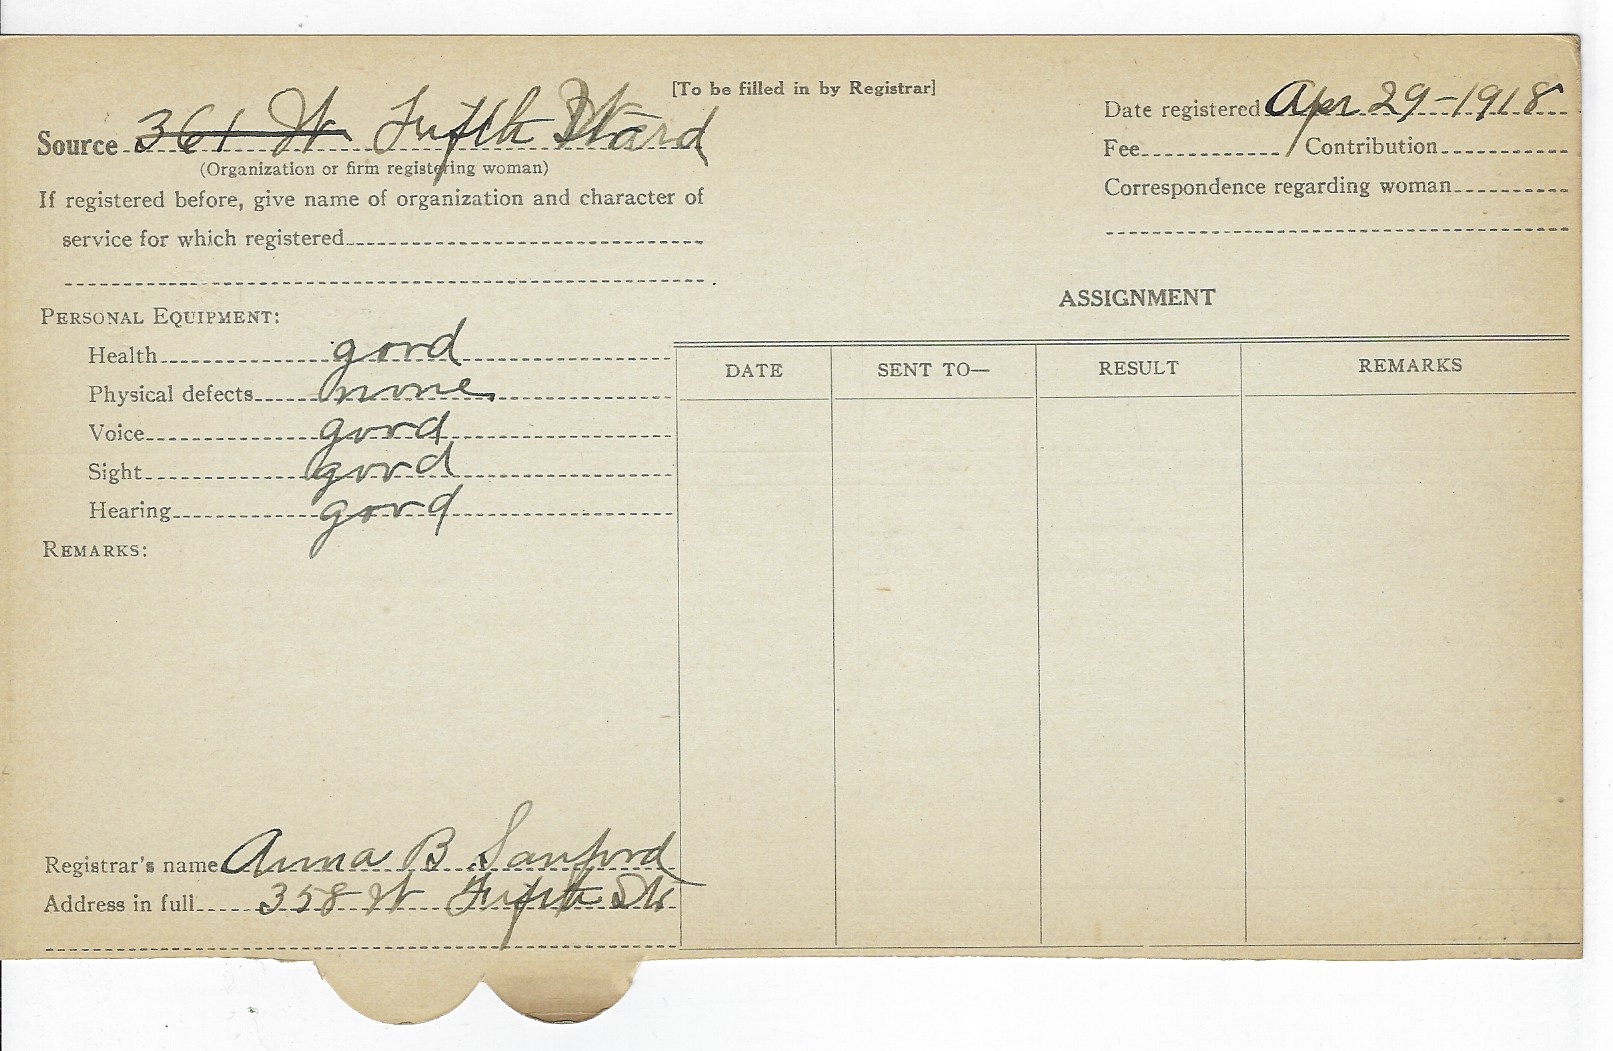 [To be filled in by Registrar]
Source 361 W Fifth Ward
(Organization or firm registering woman)
If registered before, give name of organization and character of
service for which registered
Date registered Apr 29-1918
Fee / Contribution
Correspondence regarding woman
PERSONAL EQUIPMENT:
Health good
Physical defects none
Voice good
Sight good
Hearing good
REMARKS:
ASSIGNMENT
DATE SENT TO— RESULT REMARKS
Registrar's name Anna B Sanford
Address in full 358 W Fifth St